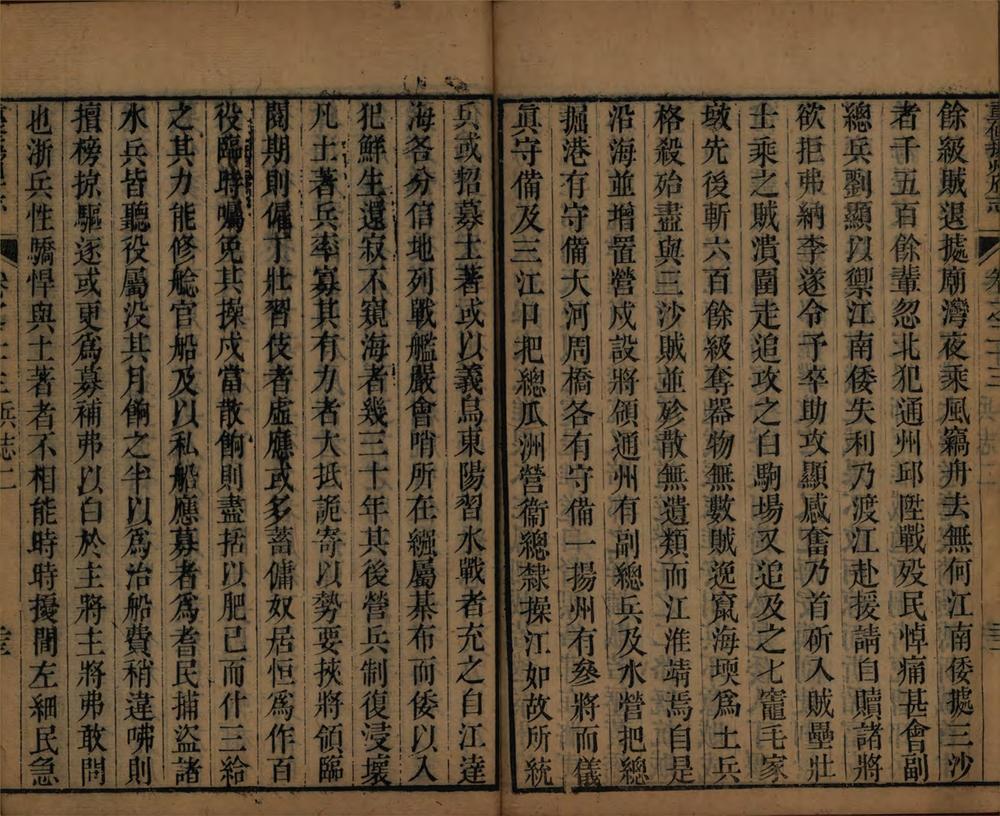 餘級賊退據廟灣夜乘風竊舟去無何江南倭據三沙
者千五百餘輩忽北犯通州邱陞戰歿民悼痛甚會副
總兵劉顯以禦江南倭失利乃渡江赴援請自贖諸將
欲拒弗納李遂令予卒助攻顯感奮乃首斫入賊壘壯
士乘之賊潰圍走追攻之白駒場又追及之七竈毛家
墩先後斬六百餘級奪器物無數賊逸竄海堧為土兵
格殺殆盡與三沙賊並殄散無遺類而江淮靖焉自是
沿海並增置營戍設將領通州有副總兵及水營把總
掘港有守備大河周橋各有守備一揚州有參將而儀
眞守備及三江口把總瓜洲營衞總隸操江如故所統
兵或招募土著或以義烏東陽習水戰者充之自江達
海各分信地列戰艦嚴會哨所在繦屬棊布而倭以入
犯鮮生還寂不窺海者幾三十年其後營兵制復浸壞
凡土著兵率寡其有力者大抵詭寄以勢要挾將領臨
閱期則傭丁壯習伎者虛應或多蓄傭奴居恒為作百
役臨時囑免其操戍當散餉則盡括以肥己而什三給
之其力能修艦官船及以私船應募者為耆民捕盜諸
水兵皆聽役屬没其月餉之半以為治船費稍違咈則
擅榜掠驅逐或更為募補弗以白於主將主將弗敢問
也浙兵性驕悍與土著者不相能時時擾閭左細民急
卷之二十三 兵誌二